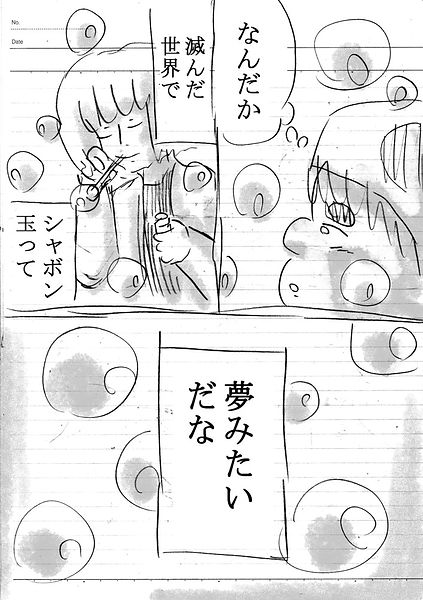 No.
Date
なんだか
滅んだ
世界で
シャボン
玉って
夢みたい
だな